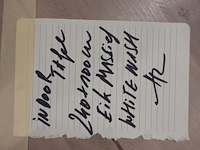 INDOOR
TAFEL
240 x 100 cm
Eik MASSIEF
WHITE WASH